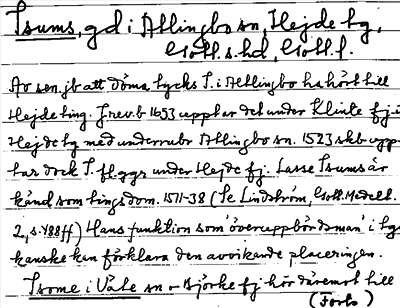 Isums, gd i Atlingbo sn, Hejde tg,
Gotl. s. hd, Gotl. l.
Av sen. jb att döma tycks I. i Atlingbo ha hört till
Hejde ting. I rev.b 1653 upptar det under Klinte fj i
Hejde tg med underrubr Atlingbo sn. 1523 skb upp-
tar dock I. fl. ggr under Hejde fj. Lasse Isums är
känd som tingsdom. 1571-38 (Se Lindström, Gotl. Medelt.
2, s. 488 ff) Hans funktion som 'överuppbördsman' i tg
kanske kan förklara den avvikande placeringen.
Isome i Väte sn o Björke fj hör däremot till
(Forts)